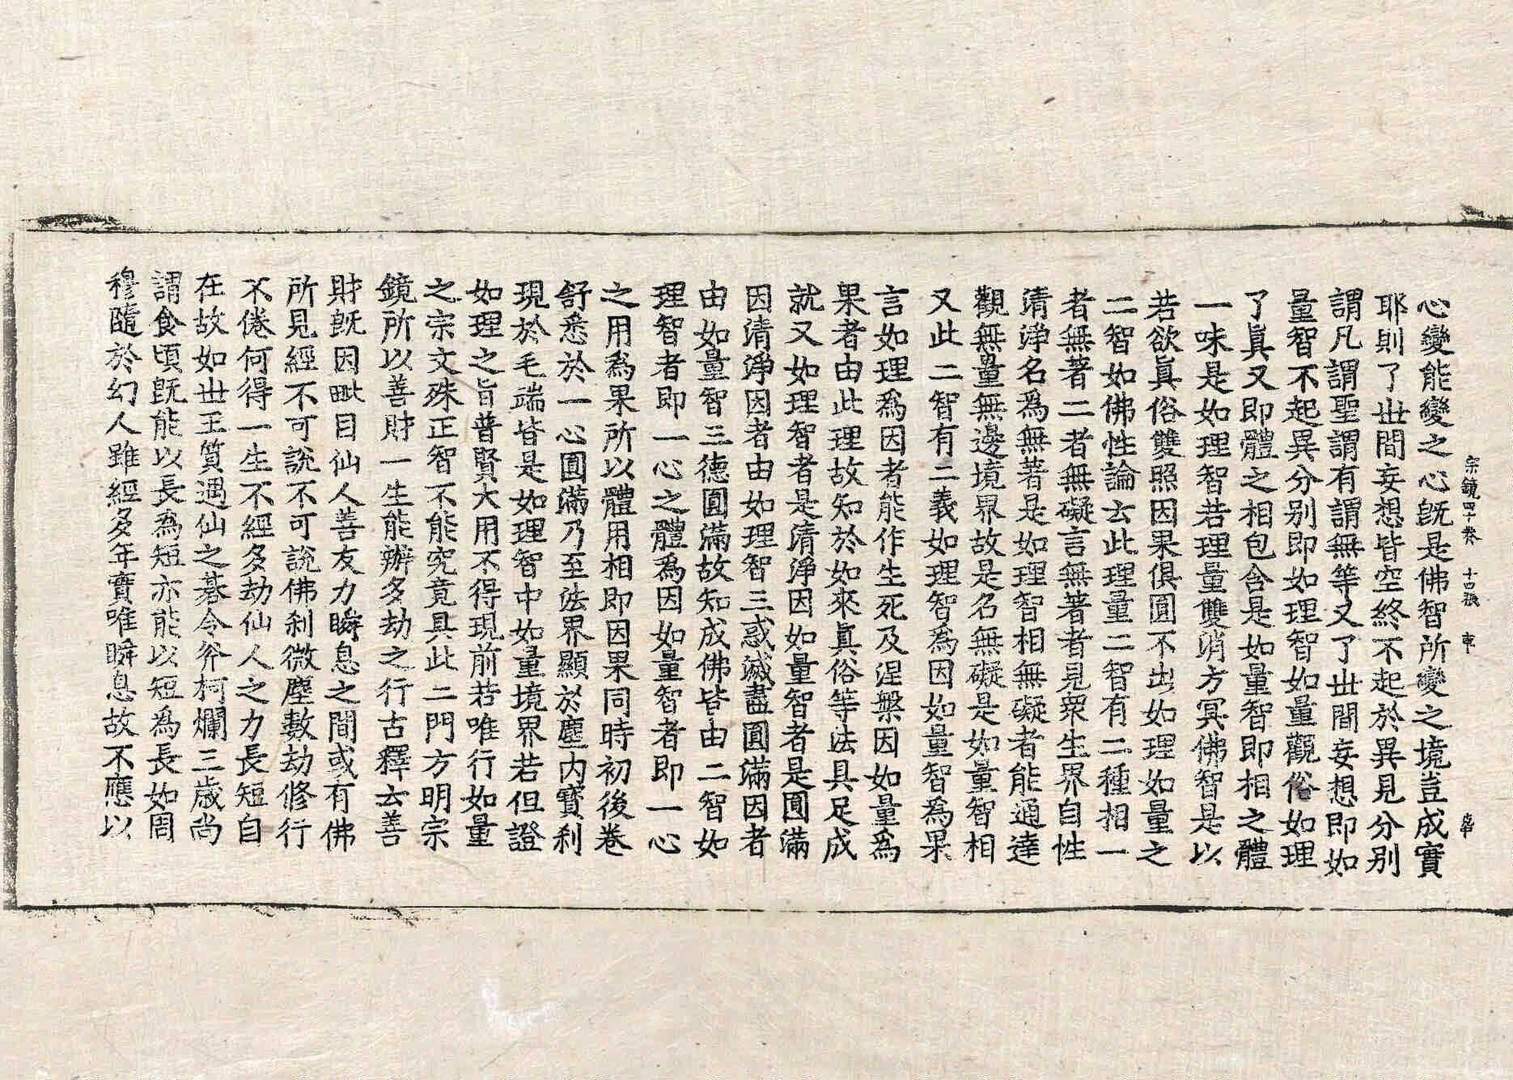 宗鏡四十卷 十四張
心變能變之心旣是佛智所變之境豈成實
耶則了世間妄想皆空終不起於異見分別
謂凡謂聖謂有謂無等又了世間妄想即如
量智不起異分别即如理智如量觀俗如理
了眞又即體之相包含是如量智即相之體
一味是如理智若理量雙消方冥佛智是以
若欲眞俗雙照因果俱圓不出如理如量之
二智如佛性論云此理量二智有二種相一
者無著二者無礙言無著者見衆生界自性
清淨名爲無著是如理智相無礙者能通達
觀無量無邊境界故是名無礙是如量智相
又此二智有二義如理智為因如量智為果
言如理爲因者能作生死及涅槃因如量爲
果者由此理故知於如來眞俗等法具足成
就又如理智者是清淨因如量智者是圓滿
因清淨因者由如理智三惑滅盡圓滿因者
由如量智三德圓滿故知成佛皆由二智如
理智者即一心之體為因如量智者即一心
之用爲果所以體用相即因果同時初後卷
舒悉於一心圓滿乃至法界顯於塵内寶刹
現於毛端皆是如理智中如量境界若但證
如理之旨普賢大用不得現前若唯行如量
之宗文殊正智不能究竟具此二門方明宗
鏡所以善財一生能辦多劫之行古釋云善
財旣因毗目仙人善友力瞬息之間或有佛
所見經不可說不可說佛刹微塵數劫修行
不倦何得一生不經多劫仙人之力長短自
在故如世王質遇仙之碁令斧柯爛三歲尚
謂食頃旣能以長為短亦能以短為長如周
穆隨於幻人雖經多年實唯瞬息故不應以